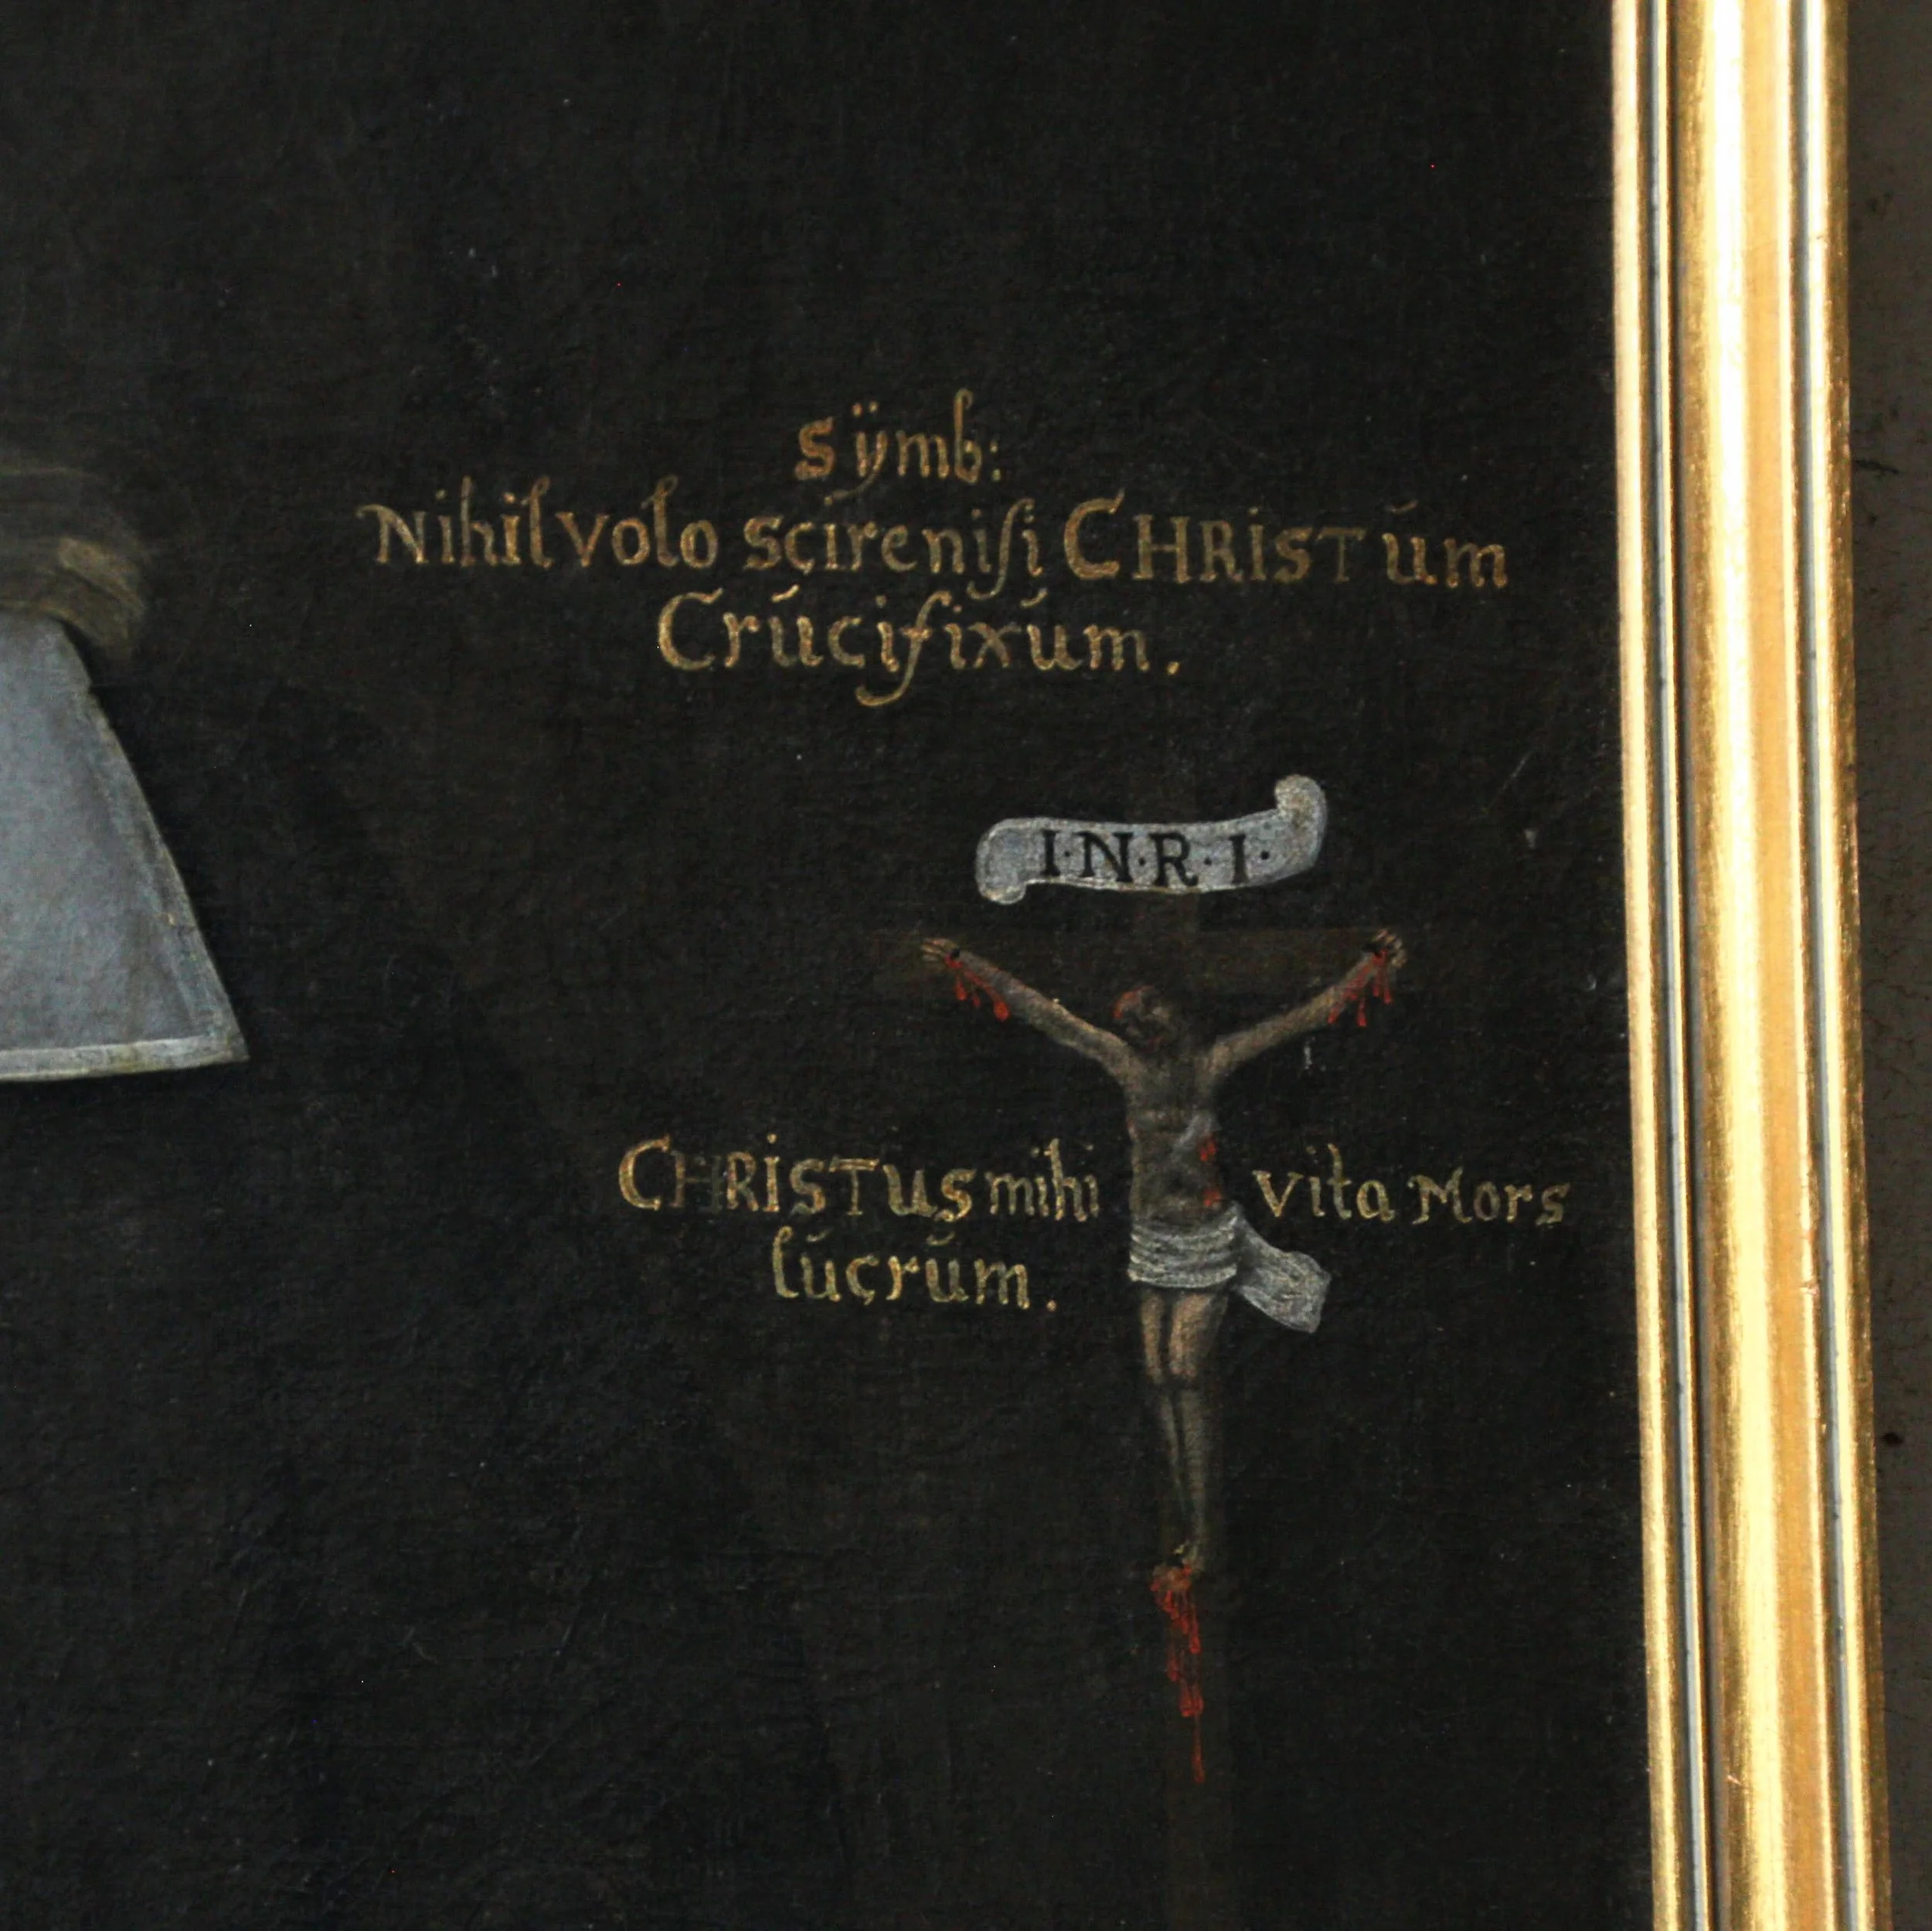 Sÿmb:
Nihil volo scire niſi CHRISTum
Crucifixum.
I·N·R·I·
CHRISTus mihi vita Mors
lucrum.